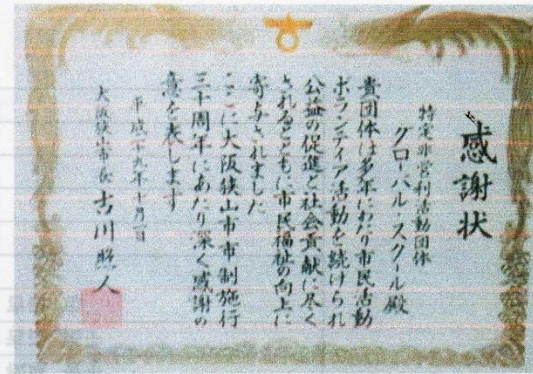 感謝状
特定非営利活動団体
グローバル・スクール殿
貴団体は多年にわたり市民活動
ボランティア活動を続けられ
公益の促進と社会貢献に尽く
されるとともに市民福祉の向上に
寄与されました
ここに大阪狭山市市制施行
三十周年にあたり深く感謝の
意を表します
平成二十九年十月一日
大阪狭山市長 古川照人